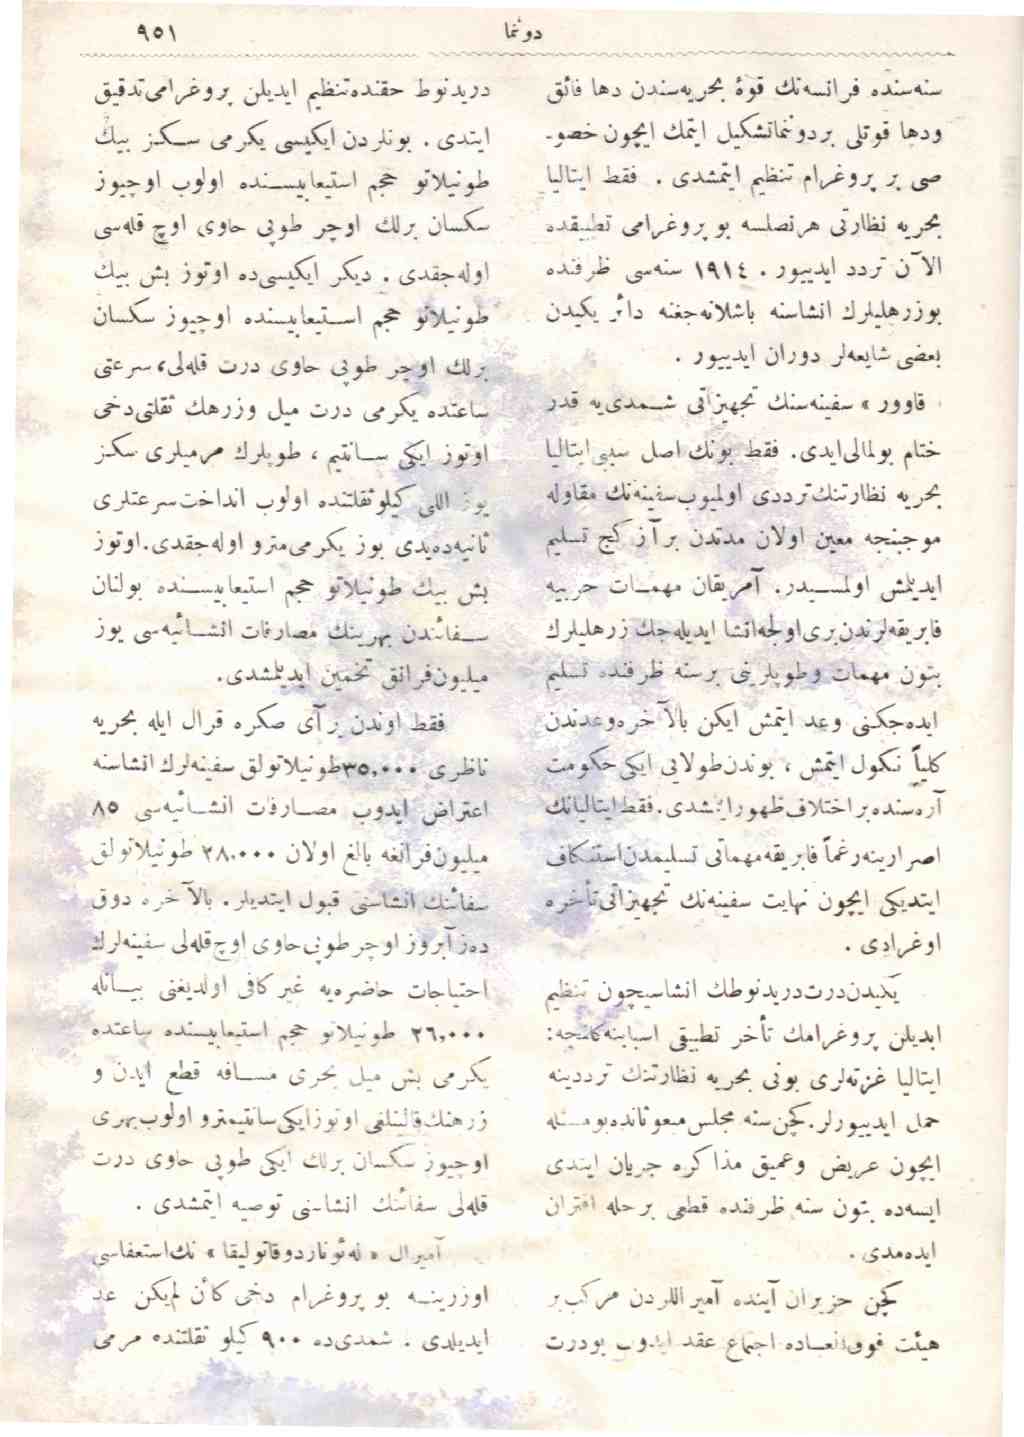 دوننما
٩٥١
سنه‌سنده فرانسه‌نك قوهٔ بحریه‌سندن دها فائق
ودها قوتلی بر دوننما تشكیل ایتمك ایچون خصو-
صی بر پروغرام تنظیم ایتمشدی . فقط ایتالیا
بحریه نظارتی هر نصلسه بو پروغرامی تطبیقده
الآن تردد ایدییور . ١٩١٤ سنه‌سی ظرفنده
بوزرهلیلرك انشاسنه باشلانه‌جغنه دائر یكیدن
بعضی شایعه‌لر دوران ایدییور .
قاوور » سفینه‌سنك تجهیزاتی شمدی‌یه قدر
ختام بولمالی‌ایدی. فقط بونك اصل سببی ایتالیا
بحریه نظارتنك ترددی اولمیوب سفینه‌نك مقاوله
موجبنجه معین اولان مدتدن بر آز كیج تسلیم
ایدیلمش اولمسیدر. آمریقان مهمات حربیه
فابریقه‌لرندن بری اولجه انشا ایدیله‌جك زرهلیلرك
بتون مهمات وطوپلرینی بر سنه ظرفنده تسلیم
ایده‌جكنی وعد ایتمش ایكن بالآخره وعدندن
كلیاً نكول ایتمش ، بوندن طولایی ایكی حكومت
آره‌سنده بر اختلاف ظهور ایتمشدی. فقط ایتالیانك
اصرارینه رغماً فابریقه مهماتی تسلیمدن استنكاف
ایتدیكی ایچون نهایت سفینه‌نك تجهیزاتی تأخره
اوغرادی .
یكیدن درت دریدنوطك انشاسیچون تنظیم
ایدیلن پروغرامك تأخر تطبیقی اسبابنه كلنجه:
ایتالیا غزته‌لری بونی بحریه نظارتنك ترددینه
حمل ایدییورلر. كچن سنه مجلس مبعوثانده بو مسئله
ایچون عریض وعمیق مذاكره جریان ایتدی
ایسه‌ده بتون سنه ظرفنده قطعی بر حله اقتران
ایده‌مدی .
كچن حزیران آینده آمیراللردن مركب بر
هیئت فوق‌العاده اجتماع عقد ایدوب بو درت
دریدنوط حقنده تنظیم ایدیلن پروغرامی تدقیق
ایتدی . بونلردن ایكیسی یكرمی سكز بیك
طونیلاتو حجم استیعابیسنده اولوب اوچیوز
سكسان برلك اوچر طوپی حاوی اوچ قله‌سی
اوله‌جقدی . دیكر ایكیسی‌ده اوتوز بش بیك
طونیلاتو حجم استیعابیسنده اوچیوز سكسان
برلك اوچر طوپی حاوی درت قله‌لی، سرعتی
ساعتده یكرمی درت میل وزرهك ثقلتی دخی
اوتوز ایكی سانتیم ، طوپلرك مرمیلری سكز
یوز اللی كیلو ثقلتنده اولوب انداخت سرعتلری
ثانیه‌ده یدی یوز یكرمی مترو اوله‌جقدی. اوتوز
بش بیك طونیلاتو حجم استیعابیسنده بولنان
سفائندن بهرینك مصارفات انشائیه‌سی یوز
میلیون فرانق تخمین ایدیلمشدی.
فقط اوندن بر آی صكره قرال ایله بحریه
ناظری ٣٥,٠٠٠ طونیلاتولق سفینه‌لرك انشاسنه
اعتراض ایدوب مصارفات انشائیه‌سی ٨٥
میلیون فرانغه بالغ اولان ٢٨,٠٠٠ طونیلاتولق
سفائنك انشاسنی قبول ایتدیلر. بالآخره دوق
ده‌ز آبروز اوچر طوپی حاوی اوچ قله‌لی سفینه‌لرك
احتیاجات حاضره‌یه غیر كافی اولدیغنی بیانله
٢٦,٠٠٠ طونیلاتو حجم استیعابیسنده ساعتده
یكرمی بش میل بحری مسافه قطع ایدن و
زرهنك قالینلغی اوتوز ایكی سانتیمترو اولوب بهری
اوچیوز سكسان برلك ایكی طوپی حاوی درت
قله‌لی سفائنك انشاسنی توصیه ایتمشدی .
آمیرال « له‌ئوناردو قاتولیقا » نك استعفاسی
اوزرینه بو پروغرام دخی كأن لم‌یكن عد
ایدیلدی . شمدی‌ده ٩٠٠ كیلو ثقلتنده مرمی